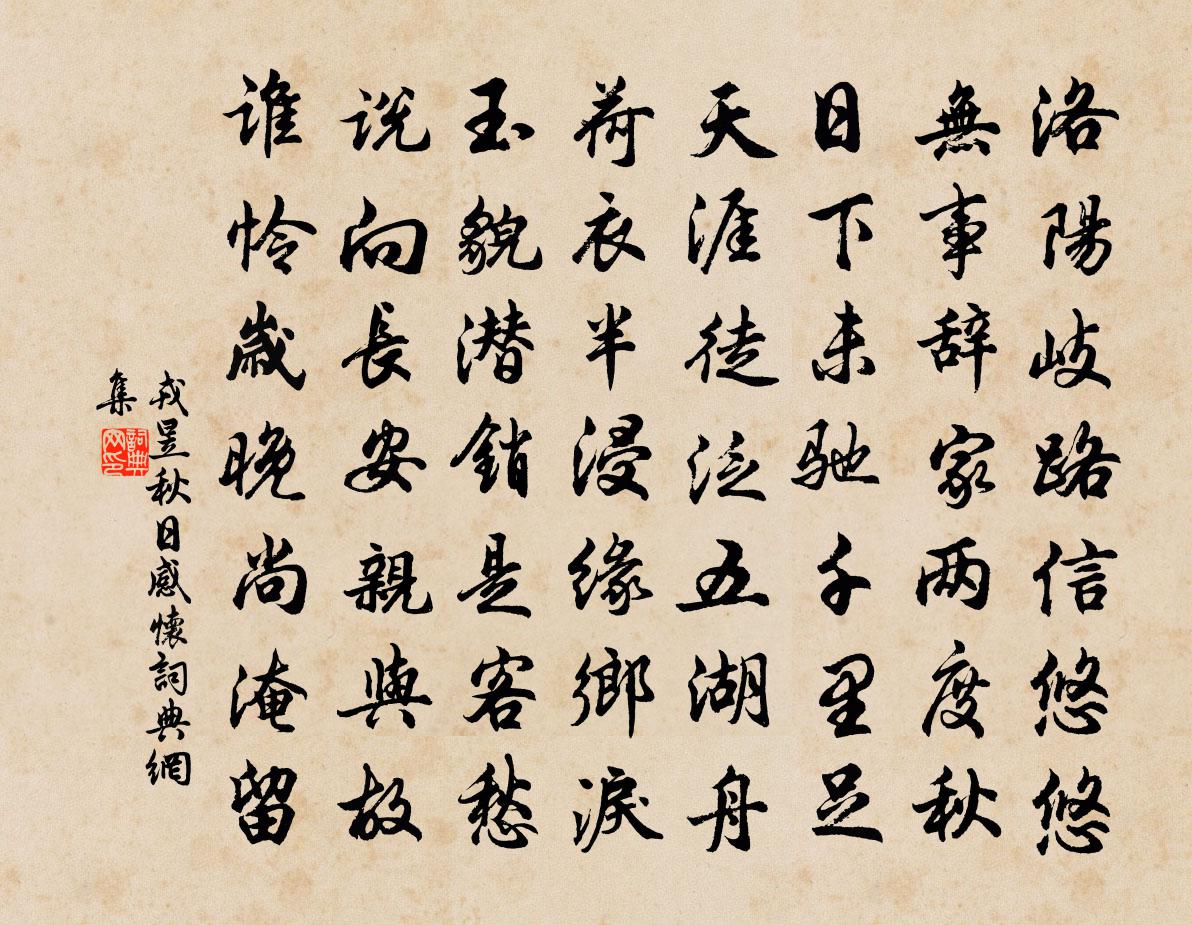 洛陽岐路信悠悠
無事辞家两度秋
日下未馳千里足
天涯徒泛五湖舟
荷衣半浸缘鄉淚
玉貌潜銷是客愁
説向長安親與故
谁怜歳晚尚淹留
戎昱秋日感懷詞典網
集
詞典
网印